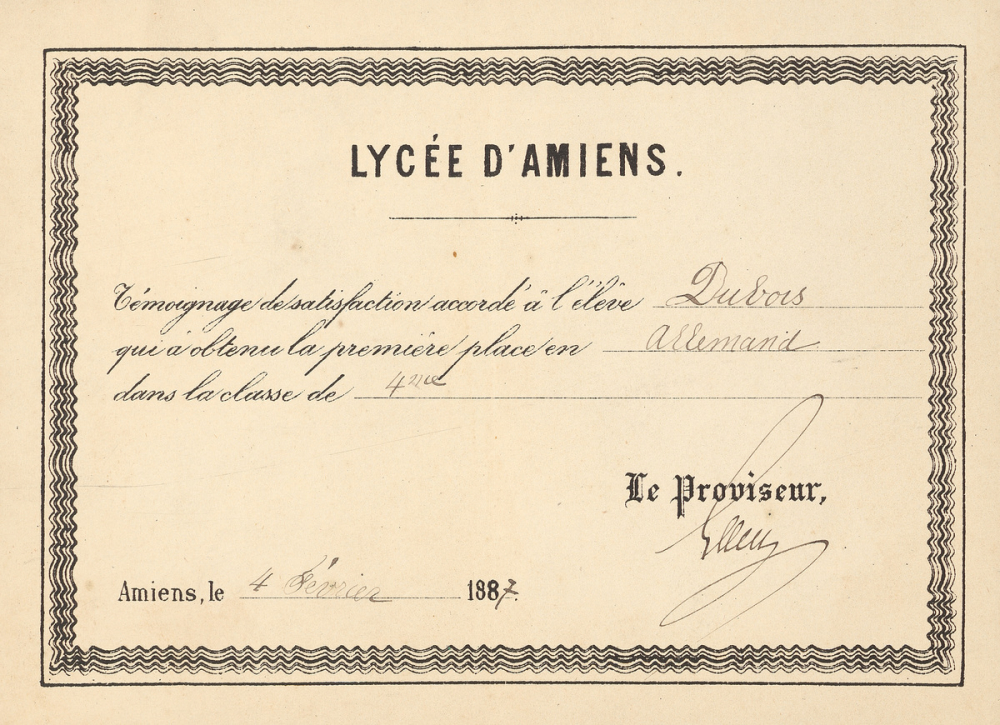 LYCÉE D'AMIENS.
Témoignage de satisfaction accordé à l'élève Dubois
qui a obtenu la première place en Allemand
dans la classe de 4me
Le Proviseur,
Amiens, le 4 Février 1887.